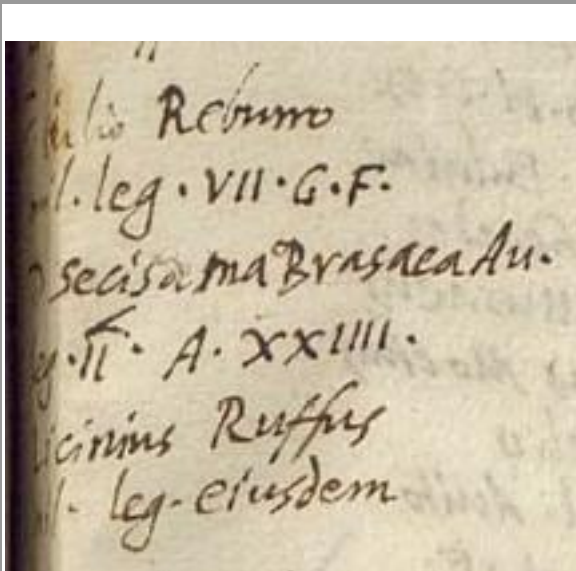 Iulio Reburro
l. leg. VII. G. F.
secisama Brasaca Au.
II. A. XXIIII.
Licinius Ruffus
l. leg. eiusdem